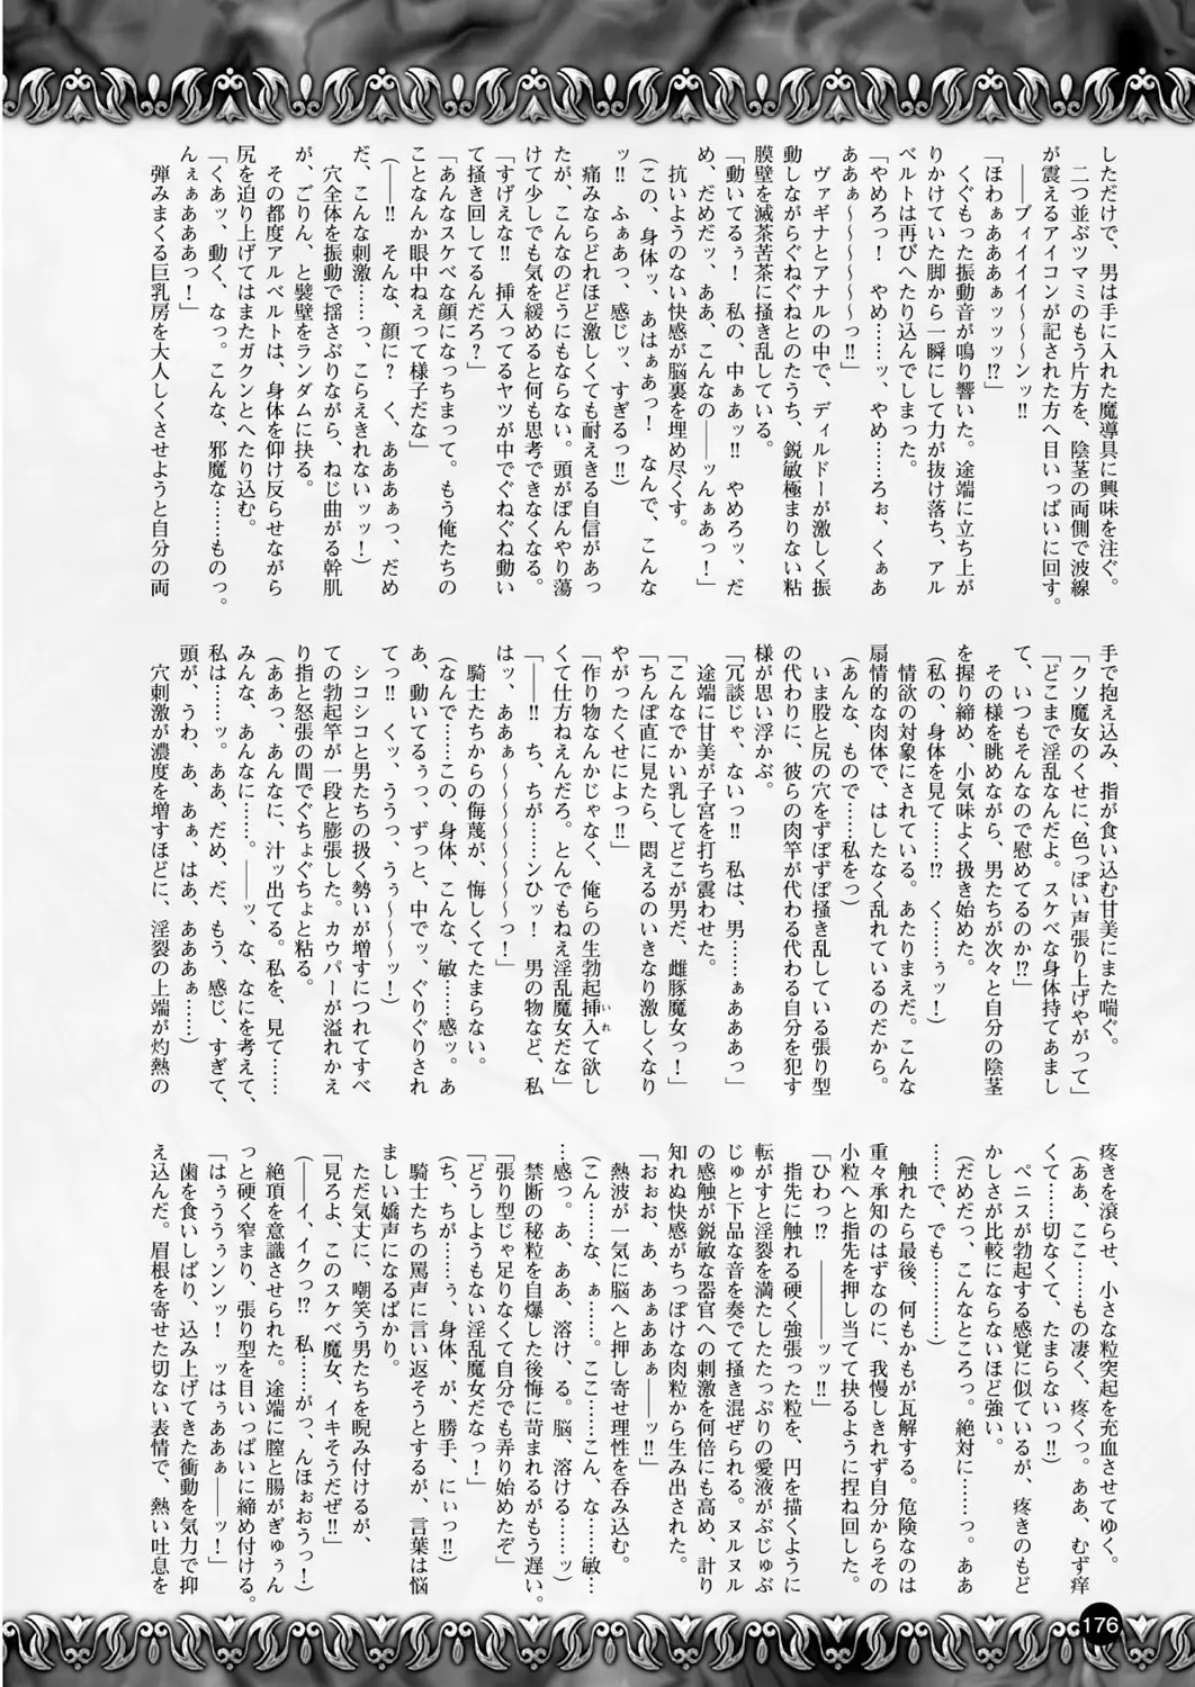 しただけで、男は手に入れた魔導具に興味を注ぐ。
二つ並ぶツマミのもう片方を、陰茎の両側で波線
が震えるアイコンが記された方へ目いっぱいに回す。
――ブィイイイ～～～ンッ!!
「ほわぁあああぁッッッ!?」
くぐもった振動音が鳴り響いた。途端に立ち上が
りかけていた脚から一瞬にして力が抜け落ち、アル
ベルトは再びへたり込んでしまった。
「やめろっ！　やめ……ッ、やめ……ろぉ、くぁあ
ああぁ～～～～～～っ!!」
ヴァギナとアナルの中で、ディルドーが激しく振
動しながらぐねぐねとのたうち、鋭敏極まりない粘
膜壁を滅茶苦茶に掻き乱している。
「動いてるぅ！　私の、中ぁあッ!!　やめろッ、だ
め、だめだッ、ああ、こんなの――ッんぁあっ！」
抗いようのない快感が脳裏を埋め尽くす。
（この、身体ッ、あはぁあっ！　なんで、こんな
ッ!!　ふぁあっ、感じッ、すぎるっ!!）
痛みならどれほど激しくても耐えきる自信があっ
たが、こんなのどうにもならない。頭がぽんやり蕩
けて少しでも気を緩めると何も思考できなくなる。
「すげえな!!　挿入ってるヤツが中でぐねぐね動い
て掻き回してるんだろ？」
「あんなスケベな顔になっちまって。もう俺たちの
ことなんか眼中ねえって様子だな」
（――!!　そんな、顔に？　く、あああぁっ、だめ
だ、こんな刺激……っ、こらえきれないッッ！）
穴全体を振動で揺さぶりながら、ねじ曲がる幹肌
が、ごりん、と襞壁をランダムに抉る。
その都度アルベルトは、身体を仰け反らせながら
尻を迫り上げてはまたガクンとへたり込む。
「くあッ、動く、なっ。こんな、邪魔な……ものっ。
んぇぁあああっ！」
弾みまくる巨乳房を大人しくさせようと自分の両
手で抱え込み、指が食い込む甘美にまた喘ぐ。
「クソ魔女のくせに、色っぽい声張り上げやがって」
「どこまで淫乱なんだよ。スケベな身体持てあまし
て、いつもそんなので慰めてるのか!?」
その様を眺めながら、男たちが次々と自分の陰茎
を握り締め、小気味よく扱き始めた。
（私の、身体を見て……!?　く……ぅッ！）
情欲の対象にされている。あたりまえだ。こんな
扇情的な肉体で、はしたなく乱れているのだから。
（あんな、もので……私をっ）
いま股と尻の穴をずぽずぽ掻き乱している張り型
の代わりに、彼らの肉竿が代わる代わる自分を犯す
様が思い浮かぶ。
「冗談じゃ、ないっ!!　私は、男……ぁあああっ」
途端に甘美が子宮を打ち震わせた。
「こんなでかい乳してどこが男だ、雌豚魔女っ！」
「ちんぽ直に見たら、悶えるのいきなり激しくなり
やがったくせによっ!!」
「作り物なんかじゃなく、俺らの生勃起挿入（いれ）て欲し
くて仕方ねえんだろ。とんでもねえ淫乱魔女だな」
「――!!　ち、ちが……ンひッ！　男の物など、私
はッ、ああぁ～～～～～～～～っ！」
騎士たちからの侮蔑が、悔しくてたまらない。
（なんで……この、身体、こんな、敏……感ッ。あ
あ、動いてるぅっ、ずっと、中でッ、ぐりぐりされ
てっ!!　くッ、ううっ、うぅ～～～ッ！）
シコシコと男たちの扱く勢いが増すにつれてすべ
ての勃起竿が一段と膨張した。カウパーが溢れかえ
り指と怒張の間でぐちょぐちょと粘る。
（ああっ、あんなに、汁ッ出てる。私を、見て……
みんな、あんなに……。――ッ、な、なにを考えて、
私は……ッ。ああ、だめ、だ、もう、感じ、すぎて、
頭が、うわ、あ、あぁ、はあ、あああぁ……）
穴刺激が濃度を増すほどに、淫裂の上端が灼熱の
疼きを滾らせ、小さな粒突起を充血させてゆく。
（ああ、ここ……もの凄く、疼くっ。ああ、むず痒
くて……切なくて、たまらないっ!!）
ペニスが勃起する感覚に似ているが、疼きのもど
かしさが比較にならないほど強い。
（だめだっ、こんなところっ。絶対に……っ。ああ
……で、でも…………）
触れたら最後、何もかもが瓦解する。危険なのは
重々承知のはずなのに、我慢しきれず自分からその
小粒へと指先を押し当てて抉るように捏ね回した。
「ひわっ!?　――――ッッ!!」
指先に触れる硬く強張った粒を、円を描くように
転がすと淫裂を満たしたたっぷりの愛液がぶじゅぶ
じゅと下品な音を奏でて掻き混ぜられる。ヌルヌル
の感触が鋭敏な器官への刺激を何倍にも高め、計り
知れぬ快感がちっぽけな肉粒から生み出された。
「おぉお、あ、あぁああぁ――ッ!!」
熱波が一気に脳へと押し寄せ理性を呑み込む。
（こん……な、ぁ……。ここ……こん、な……敏…
…感っ。あ、ああ、溶け、る。脳、溶ける……ッ）
禁断の秘粒を自爆した後悔に苛まれるがもう遅い。
「張り型じゃ足りなくて自分でも弄り始めたぞ」
「どうしようもない淫乱魔女だなっ！」
（ち、ちが……ぅ、身体、が、勝手、にぃっ!!）
騎士たちの罵声に言い返そうとするが、言葉は悩
ましい嬌声になるばかり。
ただ気丈に、嘲笑う男たちを睨み付けるが、
「見ろよ、このスケベ魔女、イキそうだぜ!!」
（――イ、イクっ!?　私……がっ、んほぉおうっ！）
絶頂を意識させられた。途端に膣と腸がぎゅぅん
っと硬く窄まり、張り型を目いっぱいに締め付ける。
「はぅううぅンンッ！　ッはぅああぁ――ッ！」
歯を食いしばり、込み上げてきた衝動を気力で抑
え込んだ。眉根を寄せた切ない表情で、熱い吐息を
176